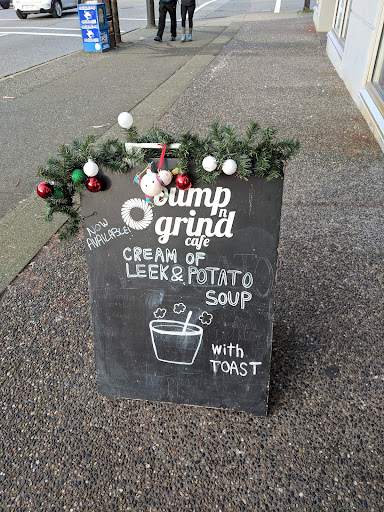 bump
n
grind
cafe
NOW
AVAILABLE!
CREAM OF
LEEK & POTATO
SOUP
with
TOAST